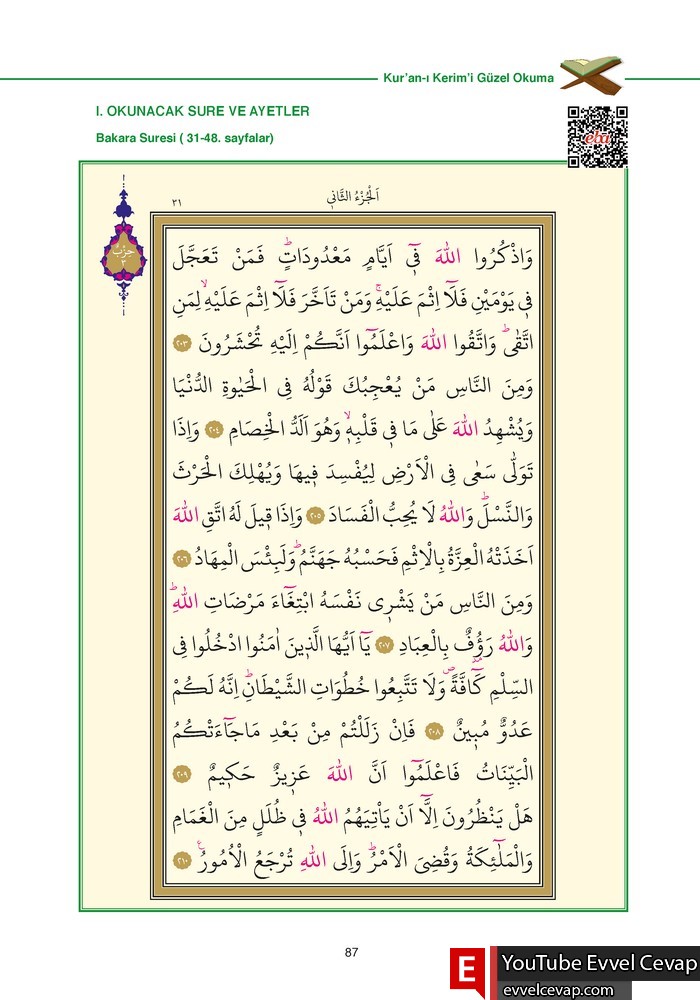 Kur'an-ı Kerim'i Güzel Okuma
I. OKUNACAK SURE VE AYETLER
Bakara Suresi ( 31-48. sayfalar)
eba
اَلْجُزْءُ الثَّانٖي
٣١
حِزْبٌ
٣
وَاذْكُرُوا اللّٰهَ فٖٓي اَيَّامٍ مَعْدُودَاتٍؕ فَمَنْ تَعَجَّلَ
فٖي يَوْمَيْنِ فَلَٓا اِثْمَ عَلَيْهِۚ وَمَنْ تَاَخَّرَ فَلَٓا اِثْمَ عَلَيْهِۙ لِمَنِ
اتَّقٰىؕ وَاتَّقُوا اللّٰهَ وَاعْلَمُٓوا اَنَّكُمْ اِلَيْهِ تُحْشَرُونَ ﴿٢٠٣﴾
وَمِنَ النَّاسِ مَنْ يُعْجِبُكَ قَوْلُهُ فِي الْحَيٰوةِ الدُّنْيَا
وَيُشْهِدُ اللّٰهَ عَلٰى مَا فٖي قَلْبِهٖۙ وَهُوَ اَلَدُّ الْخِصَامِ ﴿٢٠٤﴾ وَاِذَا
تَوَلّٰى سَعٰى فِي الْاَرْضِ لِيُفْسِدَ فٖيهَا وَيُهْلِكَ الْحَرْثَ
وَالنَّسْلَؕ وَاللّٰهُ لَا يُحِبُّ الْفَسَادَ ﴿٢٠٥﴾ وَاِذَا قٖيلَ لَهُ اتَّقِ اللّٰهَ
اَخَذَتْهُ الْعِزَّةُ بِالْاِثْمِ فَحَسْبُهُ جَهَنَّمُؕ وَلَبِئْسَ الْمِهَادُ ﴿٢٠٦﴾
وَمِنَ النَّاسِ مَنْ يَشْرٖي نَفْسَهُ ابْتِغَٓاءَ مَرْضَاتِ اللّٰهِؕ
وَاللّٰهُ رَؤُ۫فٌ بِالْعِبَادِ ﴿٢٠٧﴾ يَٓا اَيُّهَا الَّذٖينَ اٰمَنُوا ادْخُلُوا فِي
السِّلْمِ كَٓافَّةًࣕ وَلَا تَتَّبِعُوا خُطُوَاتِ الشَّيْطَانِؕ اِنَّهُ لَكُمْ
عَدُوٌّ مُبٖينٌ ﴿٢٠٨﴾ فَاِنْ زَلَلْتُمْ مِنْ بَعْدِ مَا جَٓاءَتْكُمُ
الْبَيِّنَاتُ فَاعْلَمُٓوا اَنَّ اللّٰهَ عَزٖيزٌ حَكٖيمٌ ﴿٢٠٩﴾
هَلْ يَنْظُرُونَ اِلَّٓا اَنْ يَأْتِيَهُمُ اللّٰهُ فٖي ظُلَلٍ مِنَ الْغَمَامِ
وَالْمَلٰٓئِكَةُ وَقُضِيَ الْاَمْرُؕ وَاِلَى اللّٰهِ تُرْجَعُ الْاُمُورُࣖ ﴿٢١٠﴾
87
E YouTube Evvel Cevap
evvelcevap.com